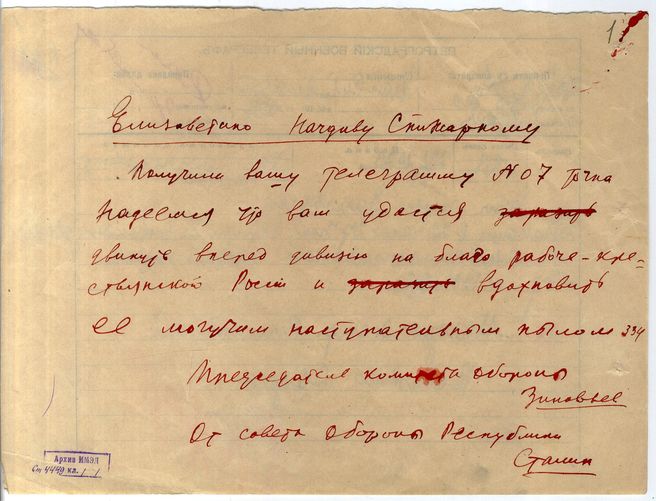 1
Елизаветино Начдиву Спижарному
Получили вашу телеграмму N 07 точка
Надеемся что вам удастся заразить
двинуть вперед дивизию на благо рабоче-кре-
стьянской России и заразить вдохновить
ее могучим наступательным пылом 334
Председатель комитета обороны
Зиновьев
От совета обороны Республики
Сталин
Архив ИМЭЛ
Ст 4449 кл. 1-1